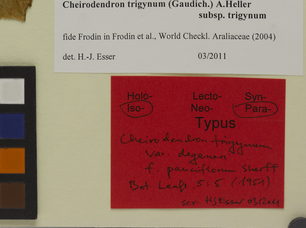 Cheirodendron trigynum (Gaudich.) A.Heller
subsp. trigynum
fide Frodin in Frodin et al., World Checkl. Araliaceae (2004)
det. H.-J. Esser 03/2011
Holo- Lecto- Syn-
Iso- Neo- Para-
Typus
Cheirodendron trigynum
var. degeneri
f. pauciflorum Sherff
Bot. Leafl. 5: 5 (1951)
scr. HJEsser 03/2011